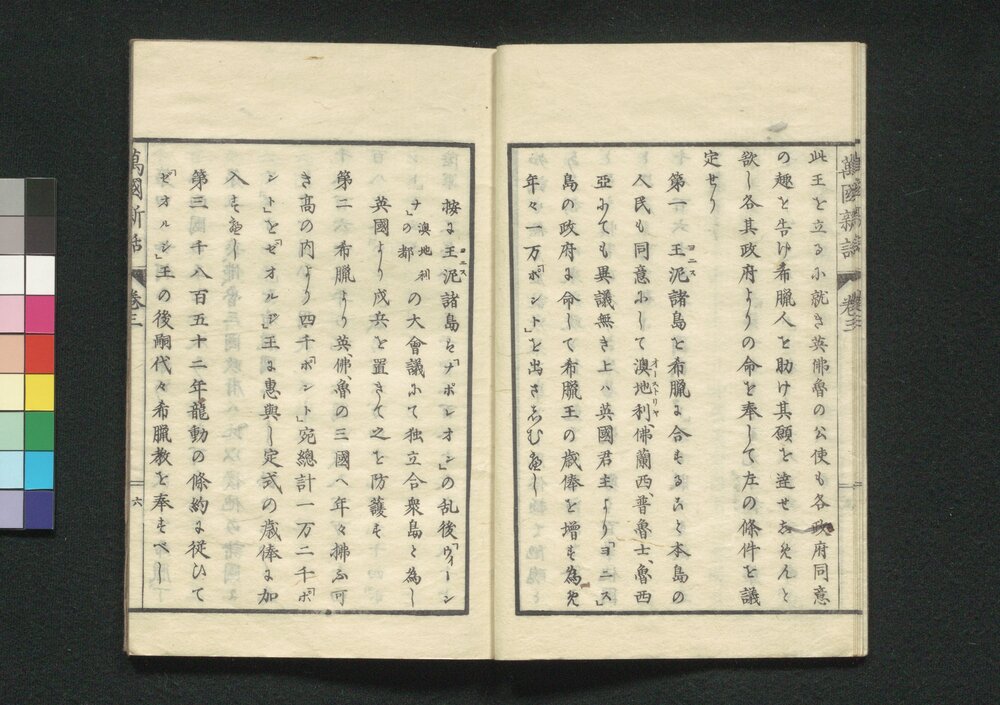 萬國新話 卷三
此王を立るに就き英佛魯の公使も各政府同意
の趣を告け希臘人を助け其願を達せしめんと
欲し各其政府よりの命を奉して左の條件を議
定せり
第一ハ王泥諸島を希臘に合すること本島の
ヨニス
人民も同意にして澳地利、佛蘭西、普魯士、魯西
オーストリヤ
亞にても異議無き上ハ英國君主より「ヨニス」
島の政府に命して希臘王の歳俸を増す為め
年々一万「ポント」を出さしむべし
按に王泥諸島ハ「ナポレオン」の乱後「ウィーン
ヨニス
ナ」澳地利の都の大會議にて独立合衆島と為し
英國より戍兵を置きて之を防護す
第二ハ希臘より英、佛、魯の三國へ年々拂ふ可
き高の内より四千「ポント」宛總計一万二千「ポ
ント」を「ゼオルジ」王に惠與し定式の歳俸に加
入すべし
第三 千八百五十二年龍動の條約に従ひて
「ゼオルジ」王の後嗣代々希臘教を奉すべし
萬國新話 卷三 六